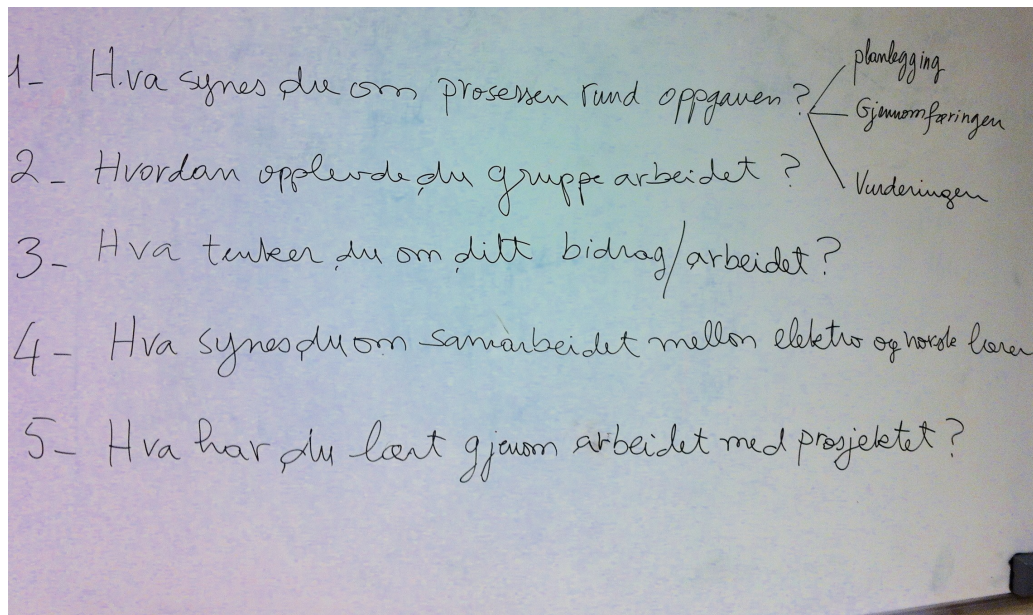 1- Hva synes du om prosessen rund oppgaven?
planlegging
Gjennomføringen
Vurderingen
2- Hvordan opplevde du gruppe arbeidet?
3- Hva tenker du om ditt bidrag/arbeidet?
4- Hva synes du om samarbeidet mellon elektro og norsk lærer
5- Hva har du lært gjenom arbeidet med prosjektet?